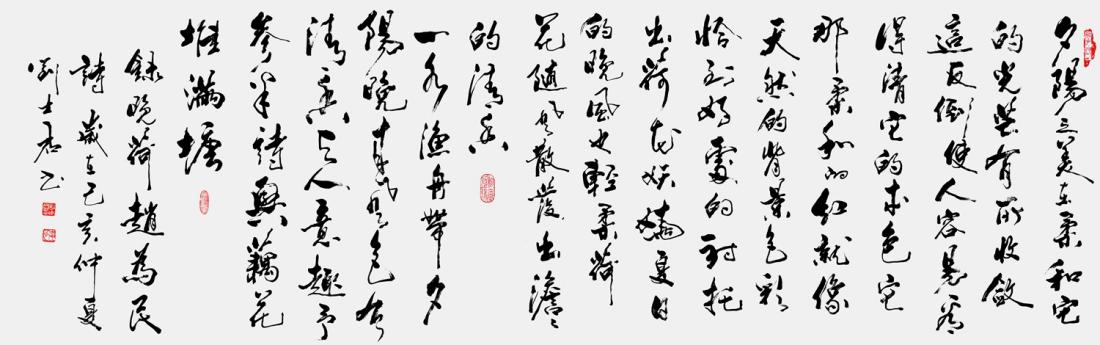 夕陽之美在柔和它
的光芒有所收斂
這反倒使人容易看
得清它的本色它
那柔和的紅就像
天然的背景色彩
恰到好處的襯托
出荷花妖嬈夏日
的晚風也輕柔荷
花随風散發出澹澹
的清香
一水漁舟帶夕
陽晚來風色有
清香与人意趣予
參半詩興藕花
堆滿塘
錄晚荷趙為民
詩歲在己亥仲夏
劉士君书